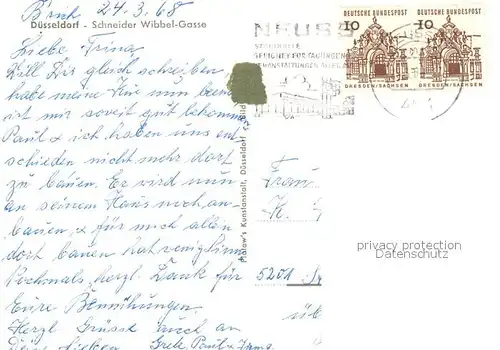 B'rich 24.3.68
Düsseldorf - Schneider Wibbel-Gasse
Liebe Trina,
Will Dir gleich schreiben
habe meine
ist mir soweit gut bekommen
Paul & ich haben uns ent-
schieden nicht mehr dort
zu bauen. Er wird nun
an seinem Haus noch an-
bauen & für mich allein
dort bauen hat wenig Sinn
Nochmals herzl. Dank für
Eure Bemühungen.
Herzl Grüsse auch an
Deine Lieben Grete Paul &
NEUSS
STADTHALLE
GEEIGNET FÜR TAGUNGEN
VERANSTALTUNGEN
DEUTSCHE BUNDESPOST
10
DRESDEN/SACHSEN
DEUTSCHE BUNDESPOST
10
DRESDEN/SACHSEN
NEUSS
Kunstanstalt, Düsseldorf
Frau
H.
5201
privacy protection
Datenschutz